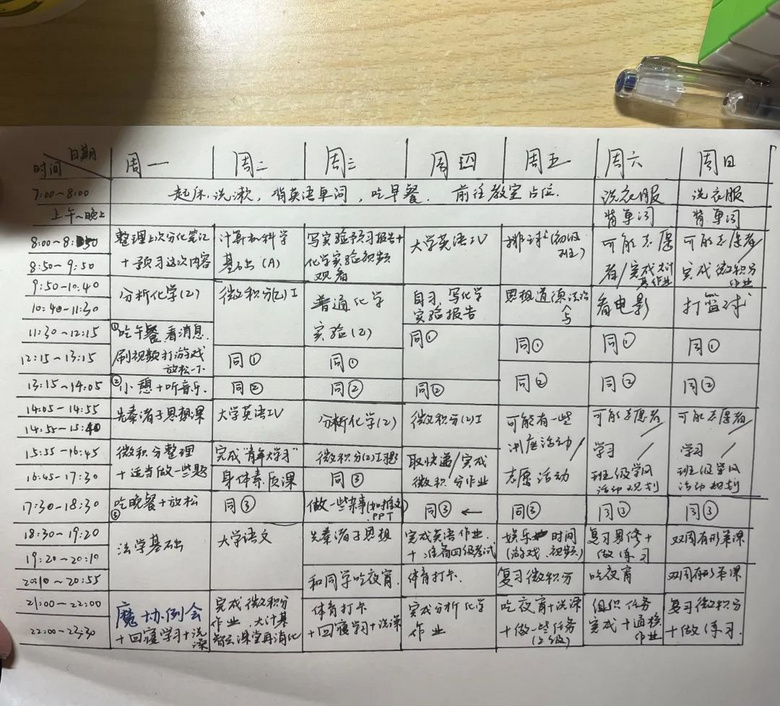 日期
时间
周一 周二 周三 周四 周五 周六 周日
7:00~8:00 起床、洗漱,背英语单词,吃早餐. 前往教室占位. 洗衣服 洗衣服
上午~晚上 背单词 背单词
8:00~8:50 整理上次分化笔记 计算机科学 写实验预习报告+ 大学英语IV 排球(初级 可能志愿 可能志愿者/
8:50~9:50 +预习这次内容 基础(A) 化学实验视频 班) 者/完成 完成微积分
观看 作业 作业
9:50~10:40 分析化学(2) 微积分(2)I 普通化学 自习,写化学 思想道德法治 看电影 打篮球
10:40~11:30 实验(2) 实验报告
11:30~12:15 ①吃午餐,看消息 同①
12:15~13:15 刷视频打游戏 同① 同① 同① 同① 同①
放松一下
13:15~14:05 ②小憩+听音乐. 同② 同② 同② 同② 同② 同②
14:05~14:55 先秦诸子思想课 大学英语IV 分析化学(2) 微积分(2)I 可能有一些 可能志愿者/ 可能志愿者/
14:55~15:40 活动/
15:55~16:45 微积分整理 完成"青年大学习" 微积分(2)I 取快递/完成 志愿活动 学习/ 学习/
16:45~17:30 +适当做一些题 身体素质课 同③ 微积分作业 班级学风 班级学风
活动规划 活动规划
17:30~18:30 吃晚餐+放松 同③ 做一些杂事 同③ ← 同③ 同③ 同③
③ PPT
18:30~19:20 法学基础 大学语文 先秦诸子思想 完成英语作业 娱乐时间 复习 + 双周有形策课
19:20~20:10 +准备四级考试 (游戏、视频) 做练习
20:10~20:55 和同学吃夜宵. 体育打卡. 复习微积分 吃夜宵 双周有形策课
21:00~22:00 魔协例会 完成微积分 体育打卡 完成分析化学 吃夜宵+洗澡 组织任务 复习微积分
22:00~23:30 +回寝学习+洗澡 作业,大计基 +回寝学习+洗澡 作业 +做一些任务 完成+ +做练习.
智云课堂再消化 作业